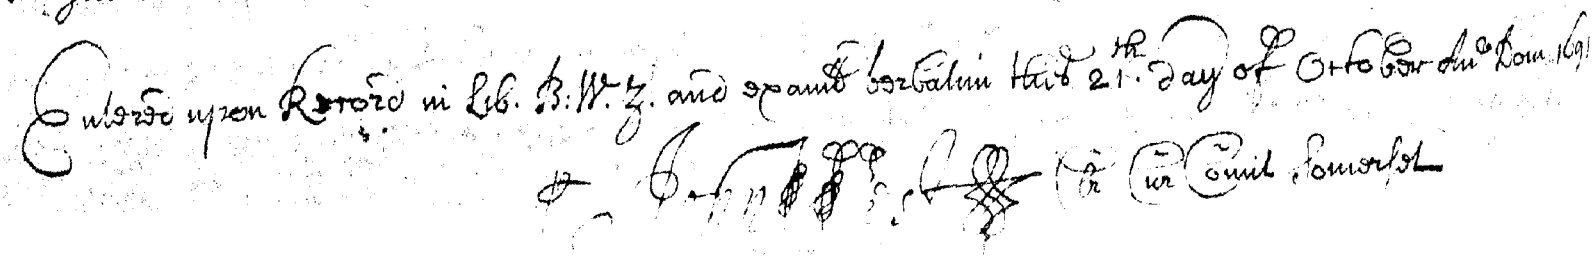 Entered upon Record in Lib. B: W. Z. and examd verbatim this 21th. day of October Ano Dom 1691
Clr Cur Comit Somerset